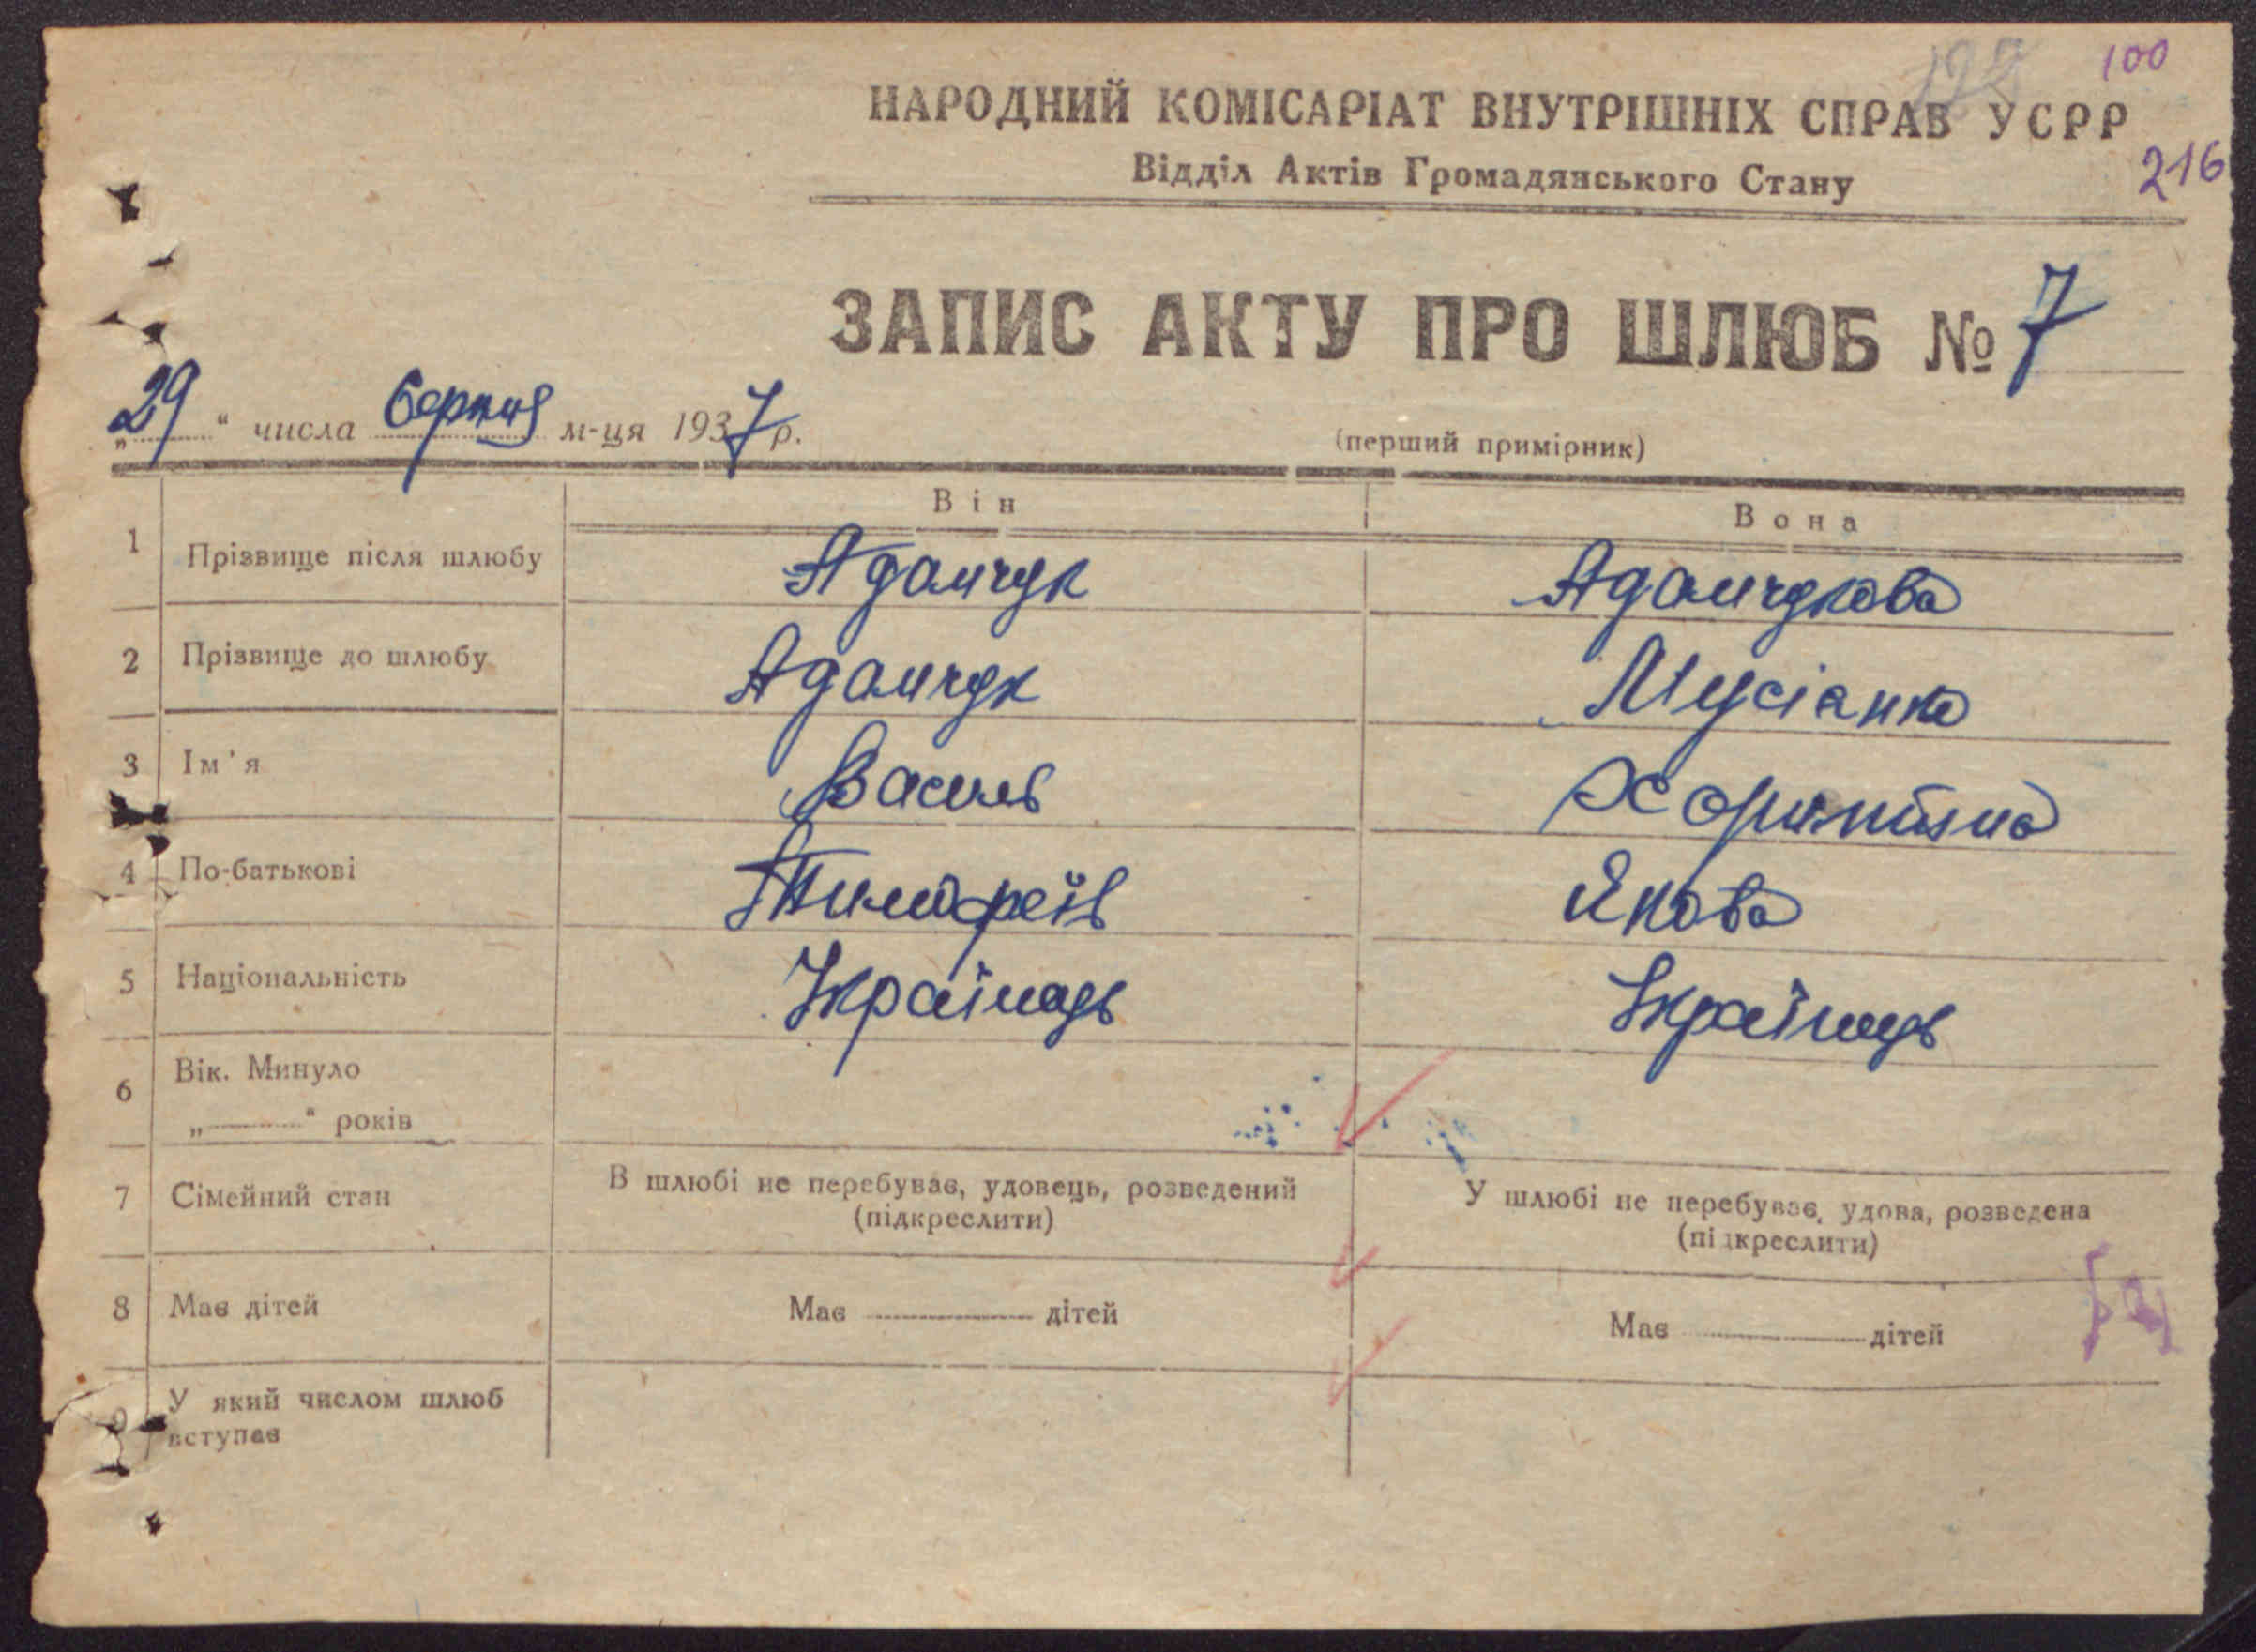 100
НАРОДНИЙ КОМІСАРІАТ ВНУТРІШНІХ СПРАВ УСРР
Відділ Актів Громадянського Стану
216
ЗАПИС АКТУ ПРО ШЛЮБ № 7
„29“ числа серпня м-ця 1937 р.
(перший примірник)
Він Вона
1 Прізвище після шлюбу Адамчук Адамчукова
2 Прізвище до шлюбу Адамчук Мусіанко
3 Ім'я Василь Хоритина
4 По-батькові Тимофеїв Якова
5 Національність Українець Українець
6 Вік. Минуло
„ “ років
7 Сімейний стан В шлюбі не перебував, удовець, розведений (підкреслити) У шлюбі не перебував, удова, розведена (підкреслити)
8 Має дітей Має дітей Має дітей
9 У який числом шлюб
вступає